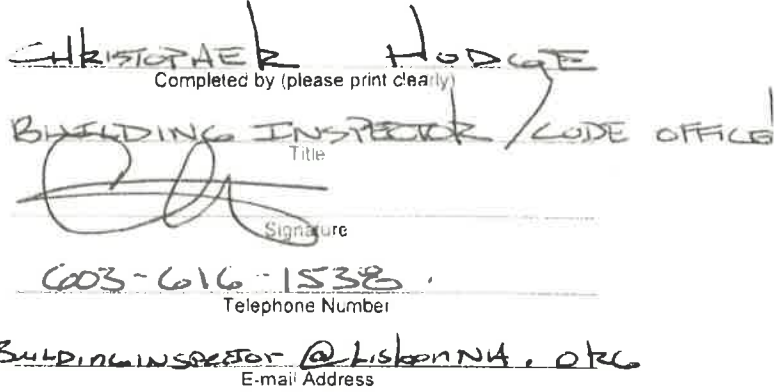 CHRISTOPHER HODGE
Completed by (please print clearly)
BUILDING INSPECTOR / CODE OFFICE
Title
Signature
603-616-1538
Telephone Number
BUILDINGINSPECTOR@LISBONNH.ORG
E-mail Address